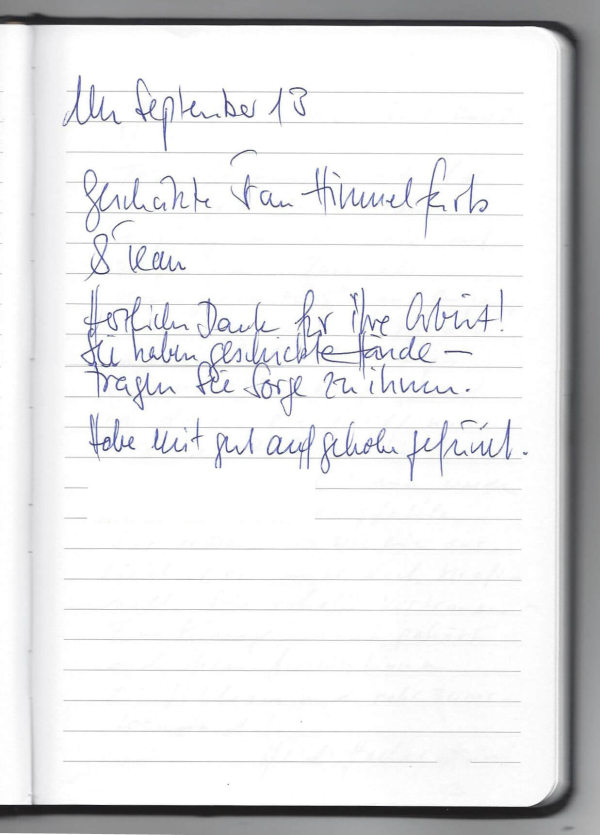 September 13
Geschätzte Frau Himmelfarb
& Team
Herzlichen Dank für Ihre Arbeit!
Sie haben geschickte Hände –
tragen Sie Sorge zu ihnen.
Habe mich gut aufgehoben gefühlt.